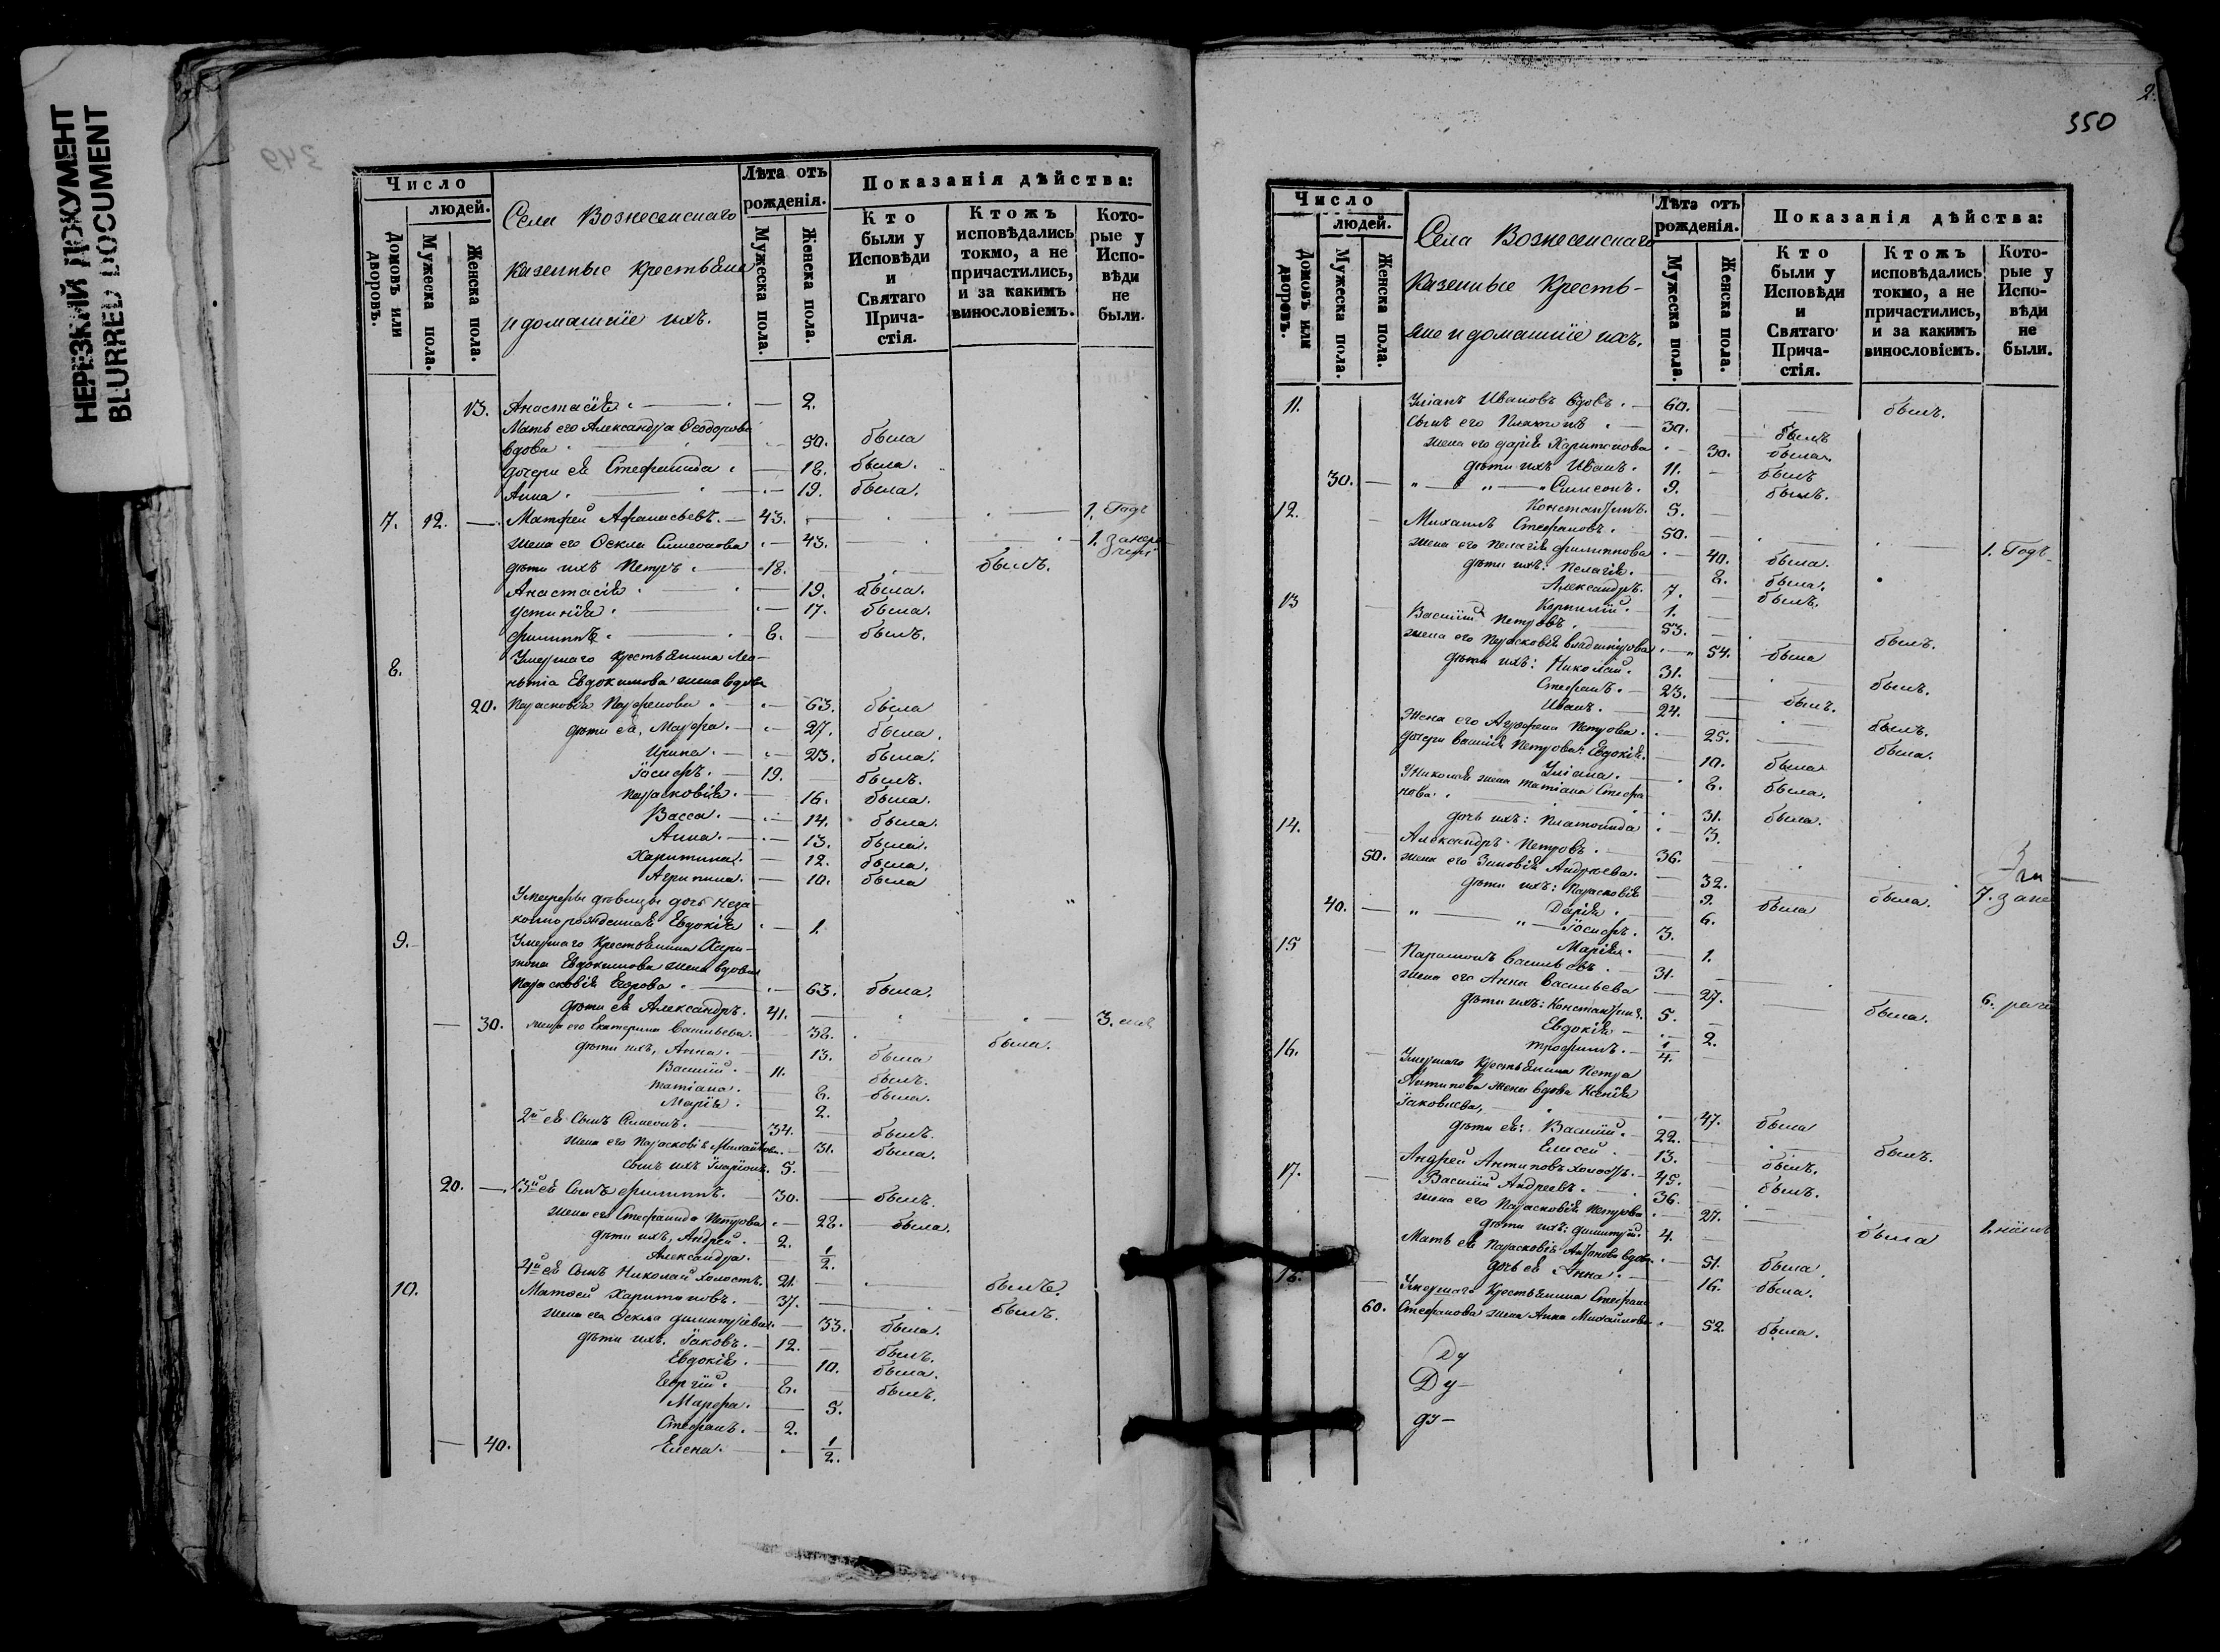 НЕРЕЗКИЙ ДОКУМЕНТ
BLURRED DOCUMENT
349
Число
людей.
Домовъ или дворовъ.
Мужеска пола.
Женска пола.
Села Вознесенскаго
казенные крестьяне
и домашніе ихъ.
Лѣта отъ рожденія.
Мужеска пола.
Женска пола.
Показанія дѣйства:
Кто были у Исповѣди и Святаго Причастія.
Ктожъ исповѣдались токмо, а не причастились, и за какимъ винословіемъ.
Которые у Исповѣди не были.
13. Анастасія. — 2.
Мать его Александра Ѳеодорова
вдова 50. была
дочери ея Стефанида. — 18. была.
Анна. — 19. была.
7. 12. — Матфей Афанасьевъ. — 43. — 1. Годъ
жена его Ѳекла Симеонова — 43. — 1.
дѣти ихъ Петръ. — 18. былъ.
Анастасія. — 19. была.
Устинія. — 17. была.
Филиппъ. — 8. — былъ.
8. Умершаго крестьянина Ле-
нтія Евдокимова жена вдова
20. Парасковія Парфенова. — 63. была
дѣти ея, Марфа. — 27. была.
Ирина. — 23. была.
Іосифъ. — 19. — былъ.
Парасковія. — 16. была.
Васса. — 14. была.
Анна. — 13. была.
Харитина. — 12. была.
Агрипина. — 10. была
дѣвицы дочь неза-
конно рожденная Евдокія — 1.
9. Умершаго Крестьянина Хари-
тона Евдокимова жена вдова
Парасковія Егорова. — 63. была.
дѣти ея Александръ. 41. — 3.
— 30. жена его Екатерина Васильева. 38. была.
дѣти ихъ, Анна. — 13. была
Василій. — 11. былъ.
Татіана. — 8. была.
Марія. — 2.
2й ея Сынъ Симеонъ. — 34. — былъ.
жена его Парасковія Михайлова. — 31. была.
сынъ ихъ Иларіонъ. 5. —
20. — 3й ея Сынъ Филиппъ. — 30. — былъ.
жена его Стефанида Петрова. — 28. была.
дѣти ихъ, Андрей. — 2.
Александра. — 1/2.
4й ея Сынъ Николай холостъ. 21. — былъ.
10. Матвей Харитоновъ. — 37. — былъ.
жена его Ѳекла Димитріева. — 33. была.
дѣти ихъ. Іаковъ. — 12. — былъ.
Евдокія. — 10. была.
Георгій. — 8. — былъ.
Марфа. — 5.
Стефанъ. — 2.
— 40. Елена. — 1/2.
2.
350
Число
людей.
Домовъ или дворовъ.
Мужеска пола.
Женска пола.
Села Вознесенскаго
казенные Кресть-
яне и домашніе ихъ.
Лѣта отъ рожденія.
Мужеска пола.
Женска пола.
Показанія дѣйства:
Кто были у Исповѣди и Святаго Причастія.
Ктожъ исповѣдались токмо, а не причастились, и за какимъ винословіемъ.
Которые у Исповѣди не были.
11. Ивановъ вдовъ. — 60. — былъ.
Сынъ его Платонъ. — 30. — былъ
жена его Дарія Харитонова — 30. была.
дѣти ихъ Иванъ. 11. — былъ
30. — " — " — Симеонъ. 9. былъ.
Константинъ. 5. —
12. Михаилъ Стефановъ. 50. — 1. Годъ
жена его Пелагія Филиппова — 40. была.
дѣти ихъ: Пелагія. — 8. была.
Александръ. 7. — былъ.
Корнилій. — 1. —
13 Василій Петровъ. — 53. — былъ.
жена его Парасковія Владимірова — 54. была
дѣти ихъ: Николай. 31. — былъ.
Стефанъ. — 23. — былъ.
Иванъ. — 24. — былъ.
Жена его Агрофена Петрова. — 25. — была.
дочери Василія Петрова: Евдокія. — 10. была
8. была.
У Николая жена Татіана Стефа-
нова. 31. была.
дочь ихъ: Платонида — 3.
14. Александръ Петровъ. — 36. —
50. жена его Зиновія Андреева. — 32. — была. 7.
дѣти ихъ: Парасковія — 9. была
40. — " — Дарія. — 6.
" — Іосифъ. 3.
Марія. — 1.
15 Парамонъ Васильевъ. 31. — 6.
жена его Анна Васильева — 27. была.
дѣти ихъ: Константинъ. 5. —
Евдокія — 2.
Трофимъ. — 1/4. —
16. Умершаго Крестьянина Петра
Антипова жена вдова Ксенія
Іаковлева, — 47. была
дѣти ея: Василій. — 22. — былъ.
Елисей. — 13. — былъ.
Андрей Антиповъ холостъ. — 45. — былъ.
17. Василій Андреевъ. — 36. — 1.
жена его Парасковія Петрова — 27. — была
дѣти ихъ: Димитрій. 4. —
Мать ея Парасковія Антонова вдова. — 51. была.
дочь ея Анна. — 16. была.
18. Умершаго Крестьянина Стефана
60. Стефанова жена Анна Михайлова. — 52. была.
Ду
Ду-